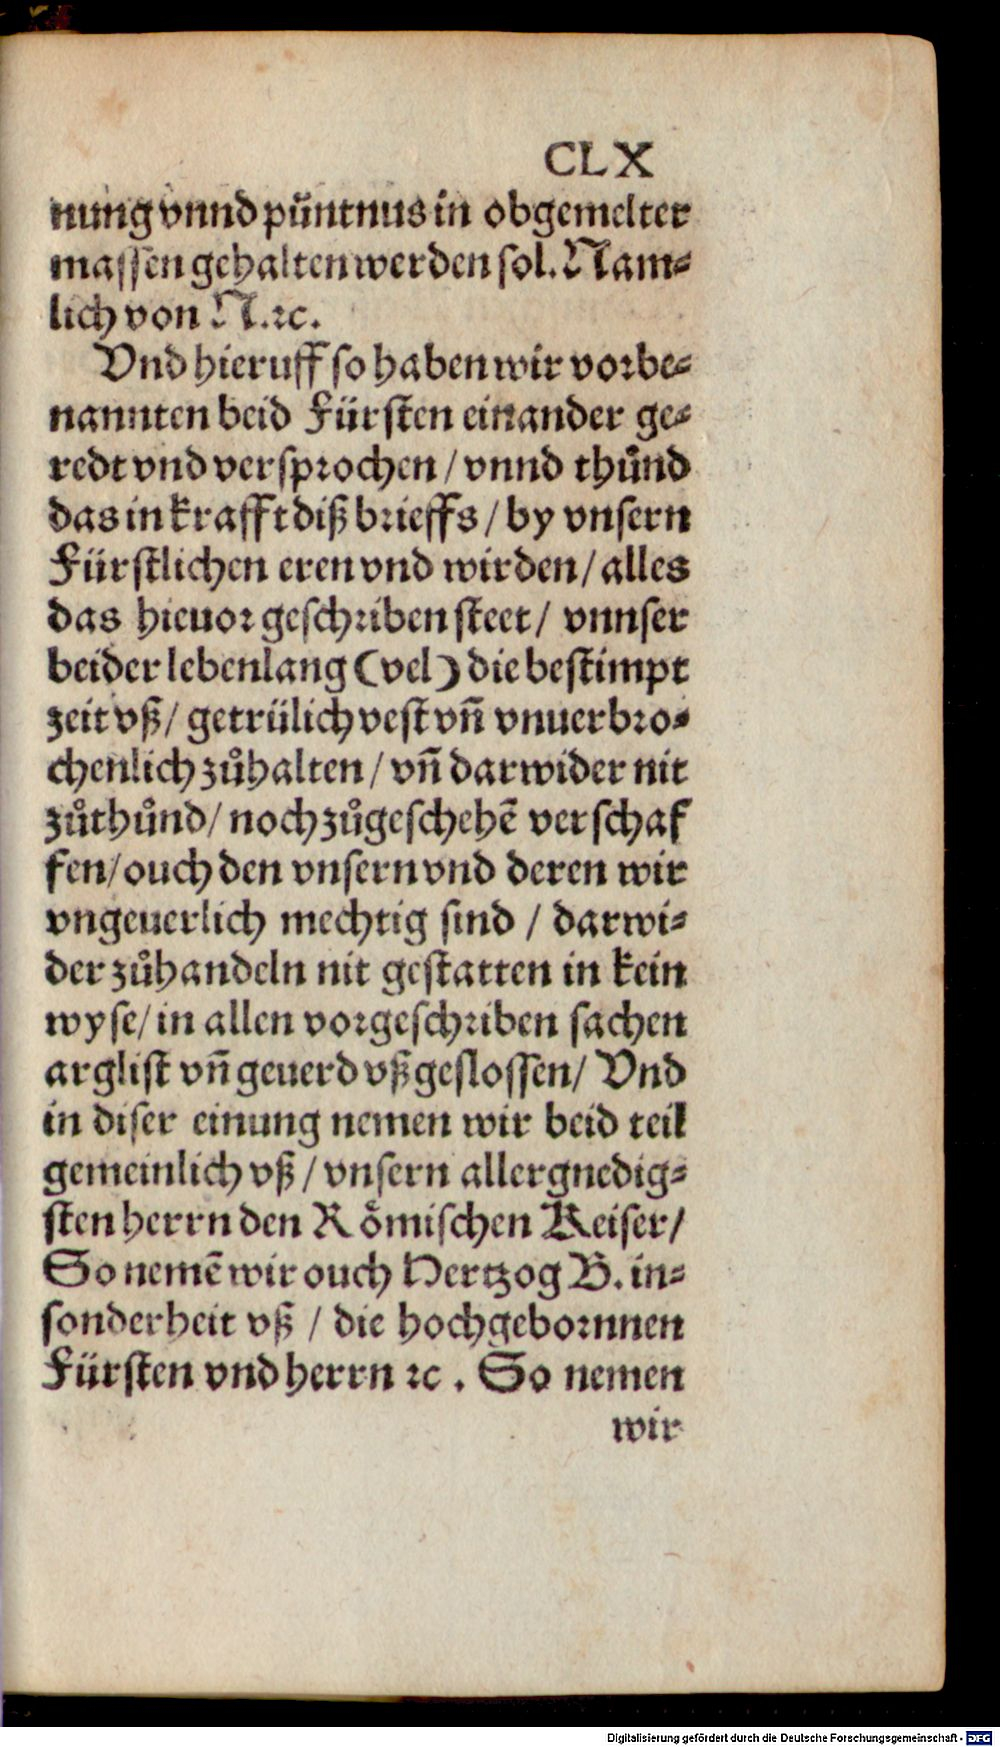 CLX
nung vnnd pu̇ntnus in obgemelter
massen gehalten werden sol. Nam⸗
lich von N. ꝛc.
Vnd hieruff so haben wir vorbe⸗
nannten beid Fürsten einander ge⸗
redt vnd versprochen / vnnd thůnd
das in krafft diß brieffs / by vnsern
Fürstlichen eren vnd wirden / alles
das hieuor geschriben steet / vnnser
beider lebenlang (vel) die bestimpt
zeit vß / getrülich vest vñ vnuerbro⸗
chenlich zůhalten / vñ darwider nit
zůthůnd / noch zůgeschehẽ verschaf
fen / ouch den vnsern vnd deren wir
vngeuerlich mechtig sind / darwi⸗
der zůhandeln nit gestatten in kein
wyse / in allen vorgeschriben sachen
arglist vñ geuerd vßgeslossen / Vnd
in diser einung nemen wir beid teil
gemeinlich vß / vnsern allergnedig⸗
sten herrn den Roͤmischen Keiser /
So nemẽ wir ouch Hertzog B. in⸗
sonderheit vß / die hochgebornnen
Fürsten vnd herrn ꝛc. So nemen
wir
Digitalisierung gefördert durch die Deutsche Forschungsgemeinschaft - DFG